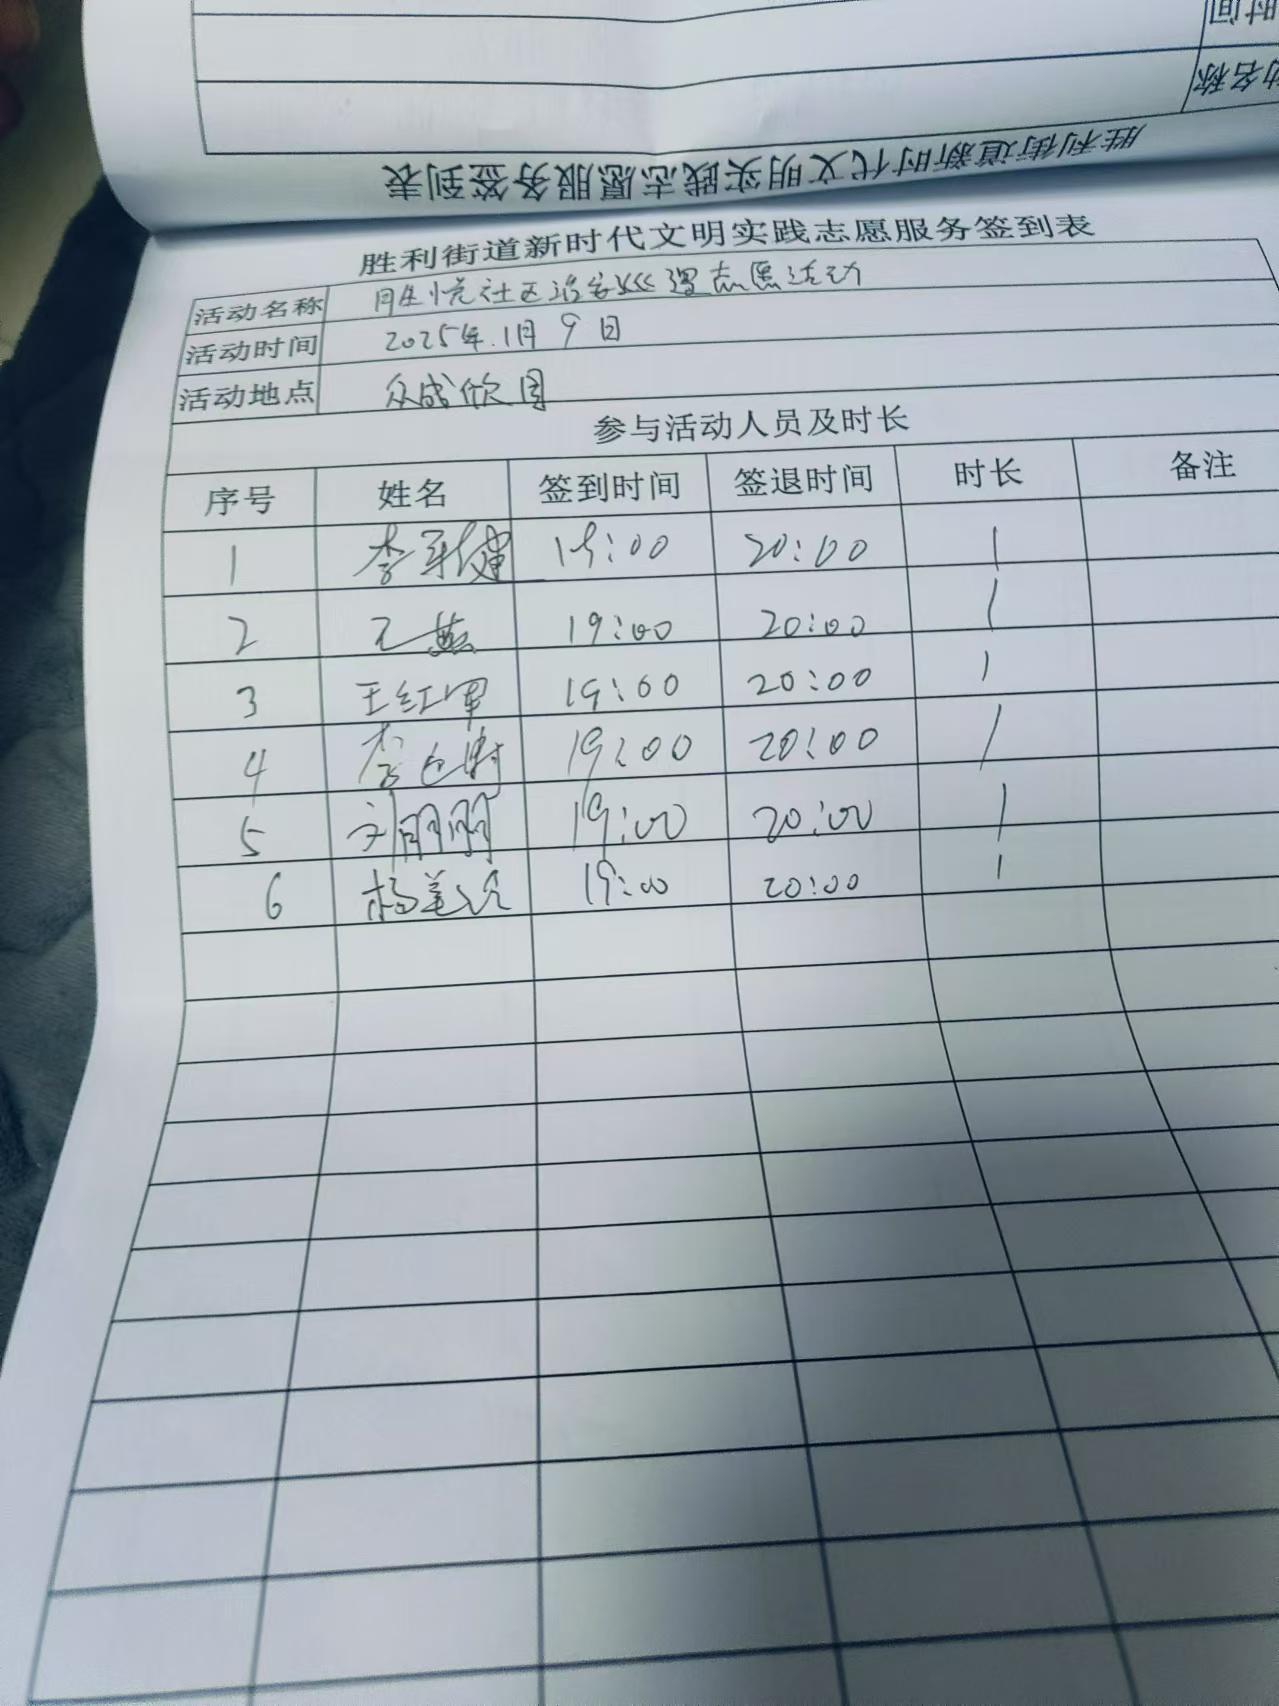 时间
动名称
胜利街道新时代文明实践志愿服务签到表
胜利街道新时代文明实践志愿服务签到表
活动名称 胜悦社区治安巡逻志愿活动
活动时间 2025年.1月9日
活动地点 众成欣园
参与活动人员及时长
序号 姓名 签到时间 签退时间 时长 备注
1 李 健 19:00 20:00 1
2 王燕 19:00 20:00 1
3 王红军 19:00 20:00 1
4 李 19:00 20:00 1
5 刘朋朋 19:00 20:00 1
6 杨美玲 19:00 20:00 1